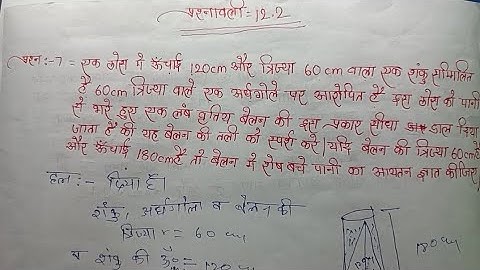 प्रश्नावली = 12.2
प्रश्न :- 7 = एक ठोस में ऊँचाई 120cm और त्रिज्या 60cm वाला एक शंकु समिलित
है 60cm त्रिज्या वाले एक अर्धगोले पर आरोपित है इस ठोस को पानी
से भरे हुए एक लंब वृत्तिय बेलन की इस प्रकार सीधा डाल दिया
जाता है की यह बेलन की तली को स्पर्श करे। यदि बेलन की त्रिज्या 60cm है
और ऊँचाई 180cm है तो बेलन में शेष बचे पानी का आयतन ज्ञात कीजिए।
हल :- दिया है।
शंकु, अर्धगोला व बेलन की
त्रिज्या r = 60 cm
व शंकु की ऊँ० = 120 cm
120 cm